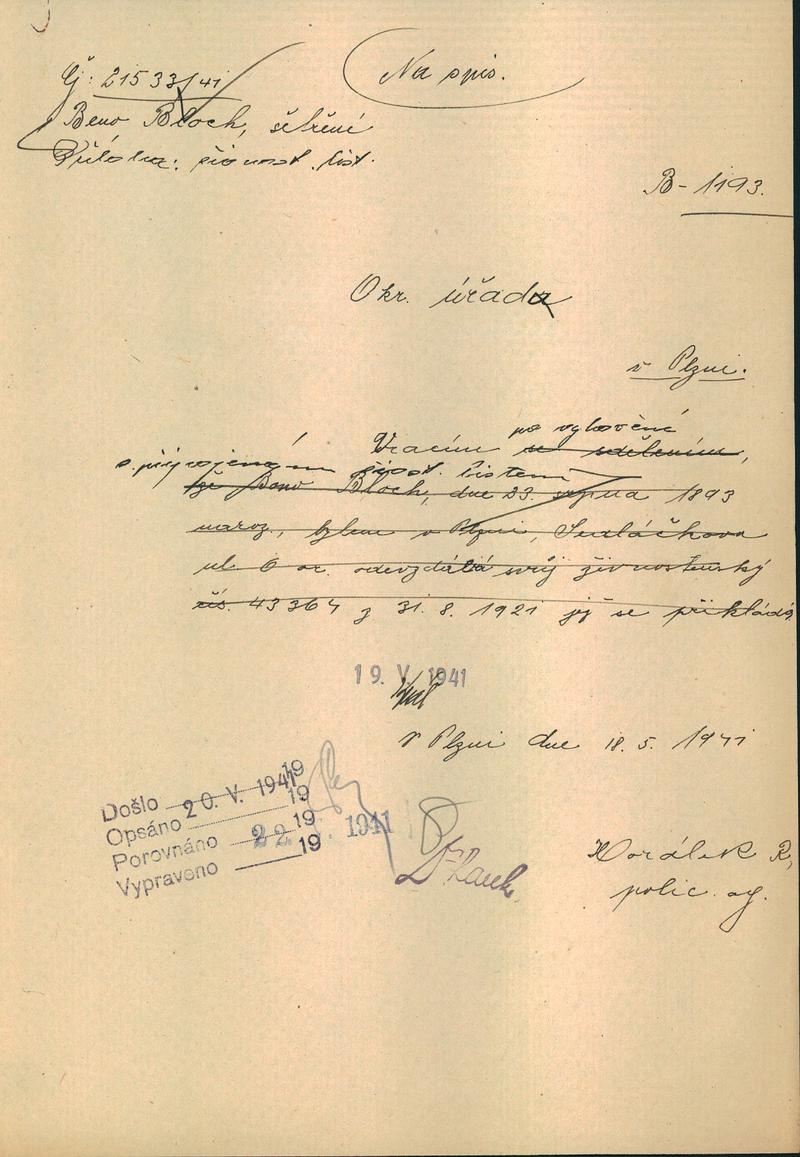 Na spis.
Čj: 21533/41
Beno Bloch, šetření
Příloha: živnost. list.
B-1193.
Okr. úřadu
v Plzni.
po vyhovění
Vracím se sdělením,
s připojeným živost. listem
že Beno Bloch, dne 23. srpna 1893
naroz., bytem v Plzni, Sedláčkova
ul. 6 or. odevzdal svůj živnostenský
čís. 43364 z 31. 8. 1921 jež se přikládá.
19. V. 1941
V Plzni dne 18. 5. 1941
Došlo 20. V. 1941 19
Opsáno 19
Porovnáno 22. V. 1941 19
Vypraveno 19
Korálek R,
polic. ag.